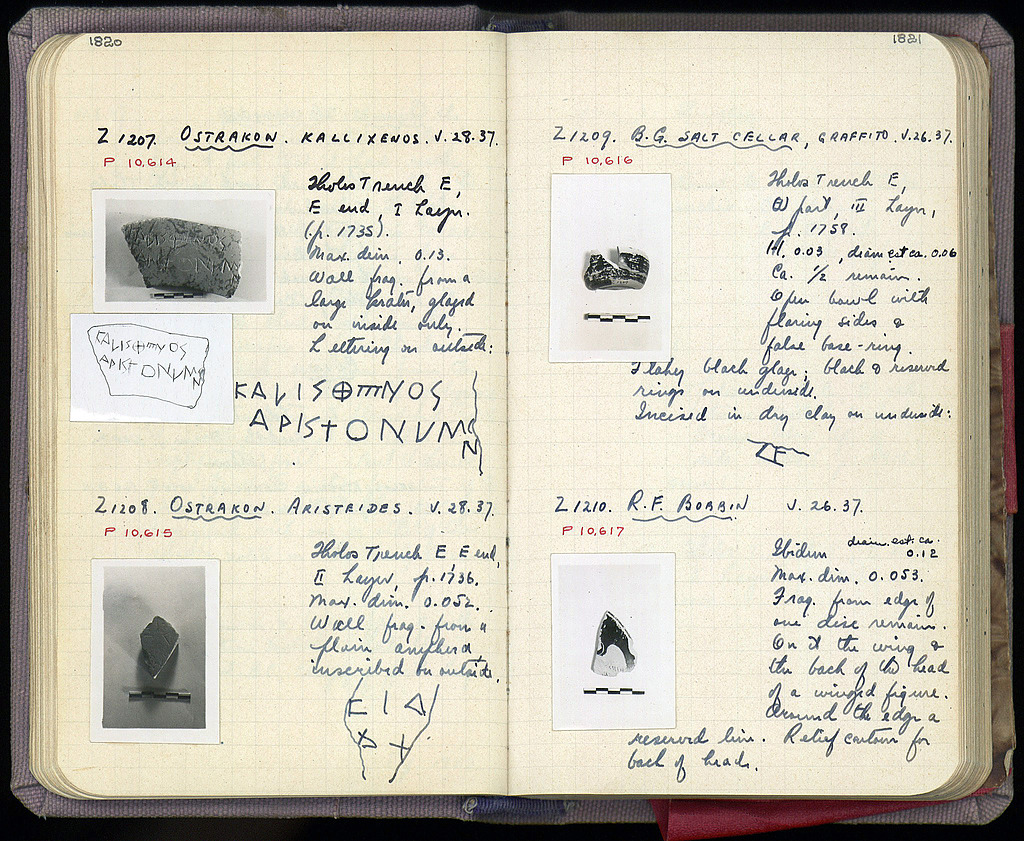 1820
Z 1207. OSTRAKON. KALLIXENOS. V.28.37.
P 10,614
Tholos Trench E,
E end, I Layer.
(p. 1735).
Max. dim. 0.13.
Wall frag. from a
large krater, glazed
on inside only.
Lettering on outside:
Z 1208. OSTRAKON. ARISTEIDES. V.28.37.
P 10,615
Tholos Trench E, E end,
II Layer, p. 1736.
Max. dim. 0.052.
Wall frag. from a
plain amphora,
inscribed on outside.
1821
Z 1209. B.G. SALT CELLAR, GRAFFITO. V.26.37.
P 10,616
Tholos Trench E,
part, III Layer,
p. 1758.
H. 0.03, diam est ca. 0.06
Ca. 1/2 remain.
Open bowl with
flaring sides &
false base-ring.
Flakey black glaze; black & reserved
rings on underside.
Incised in dry clay on underside:
Z 1210. R.F. BOBBIN V.26.37.
P 10,617
Ibidem diam. est. ca. 0.12
Max. dim. 0.053.
Frag. from edge of
one disc remain.
On it the wing &
the back of the head
of a winged figure.
Around the edge a
reserved line. Relief contour for
back of head.